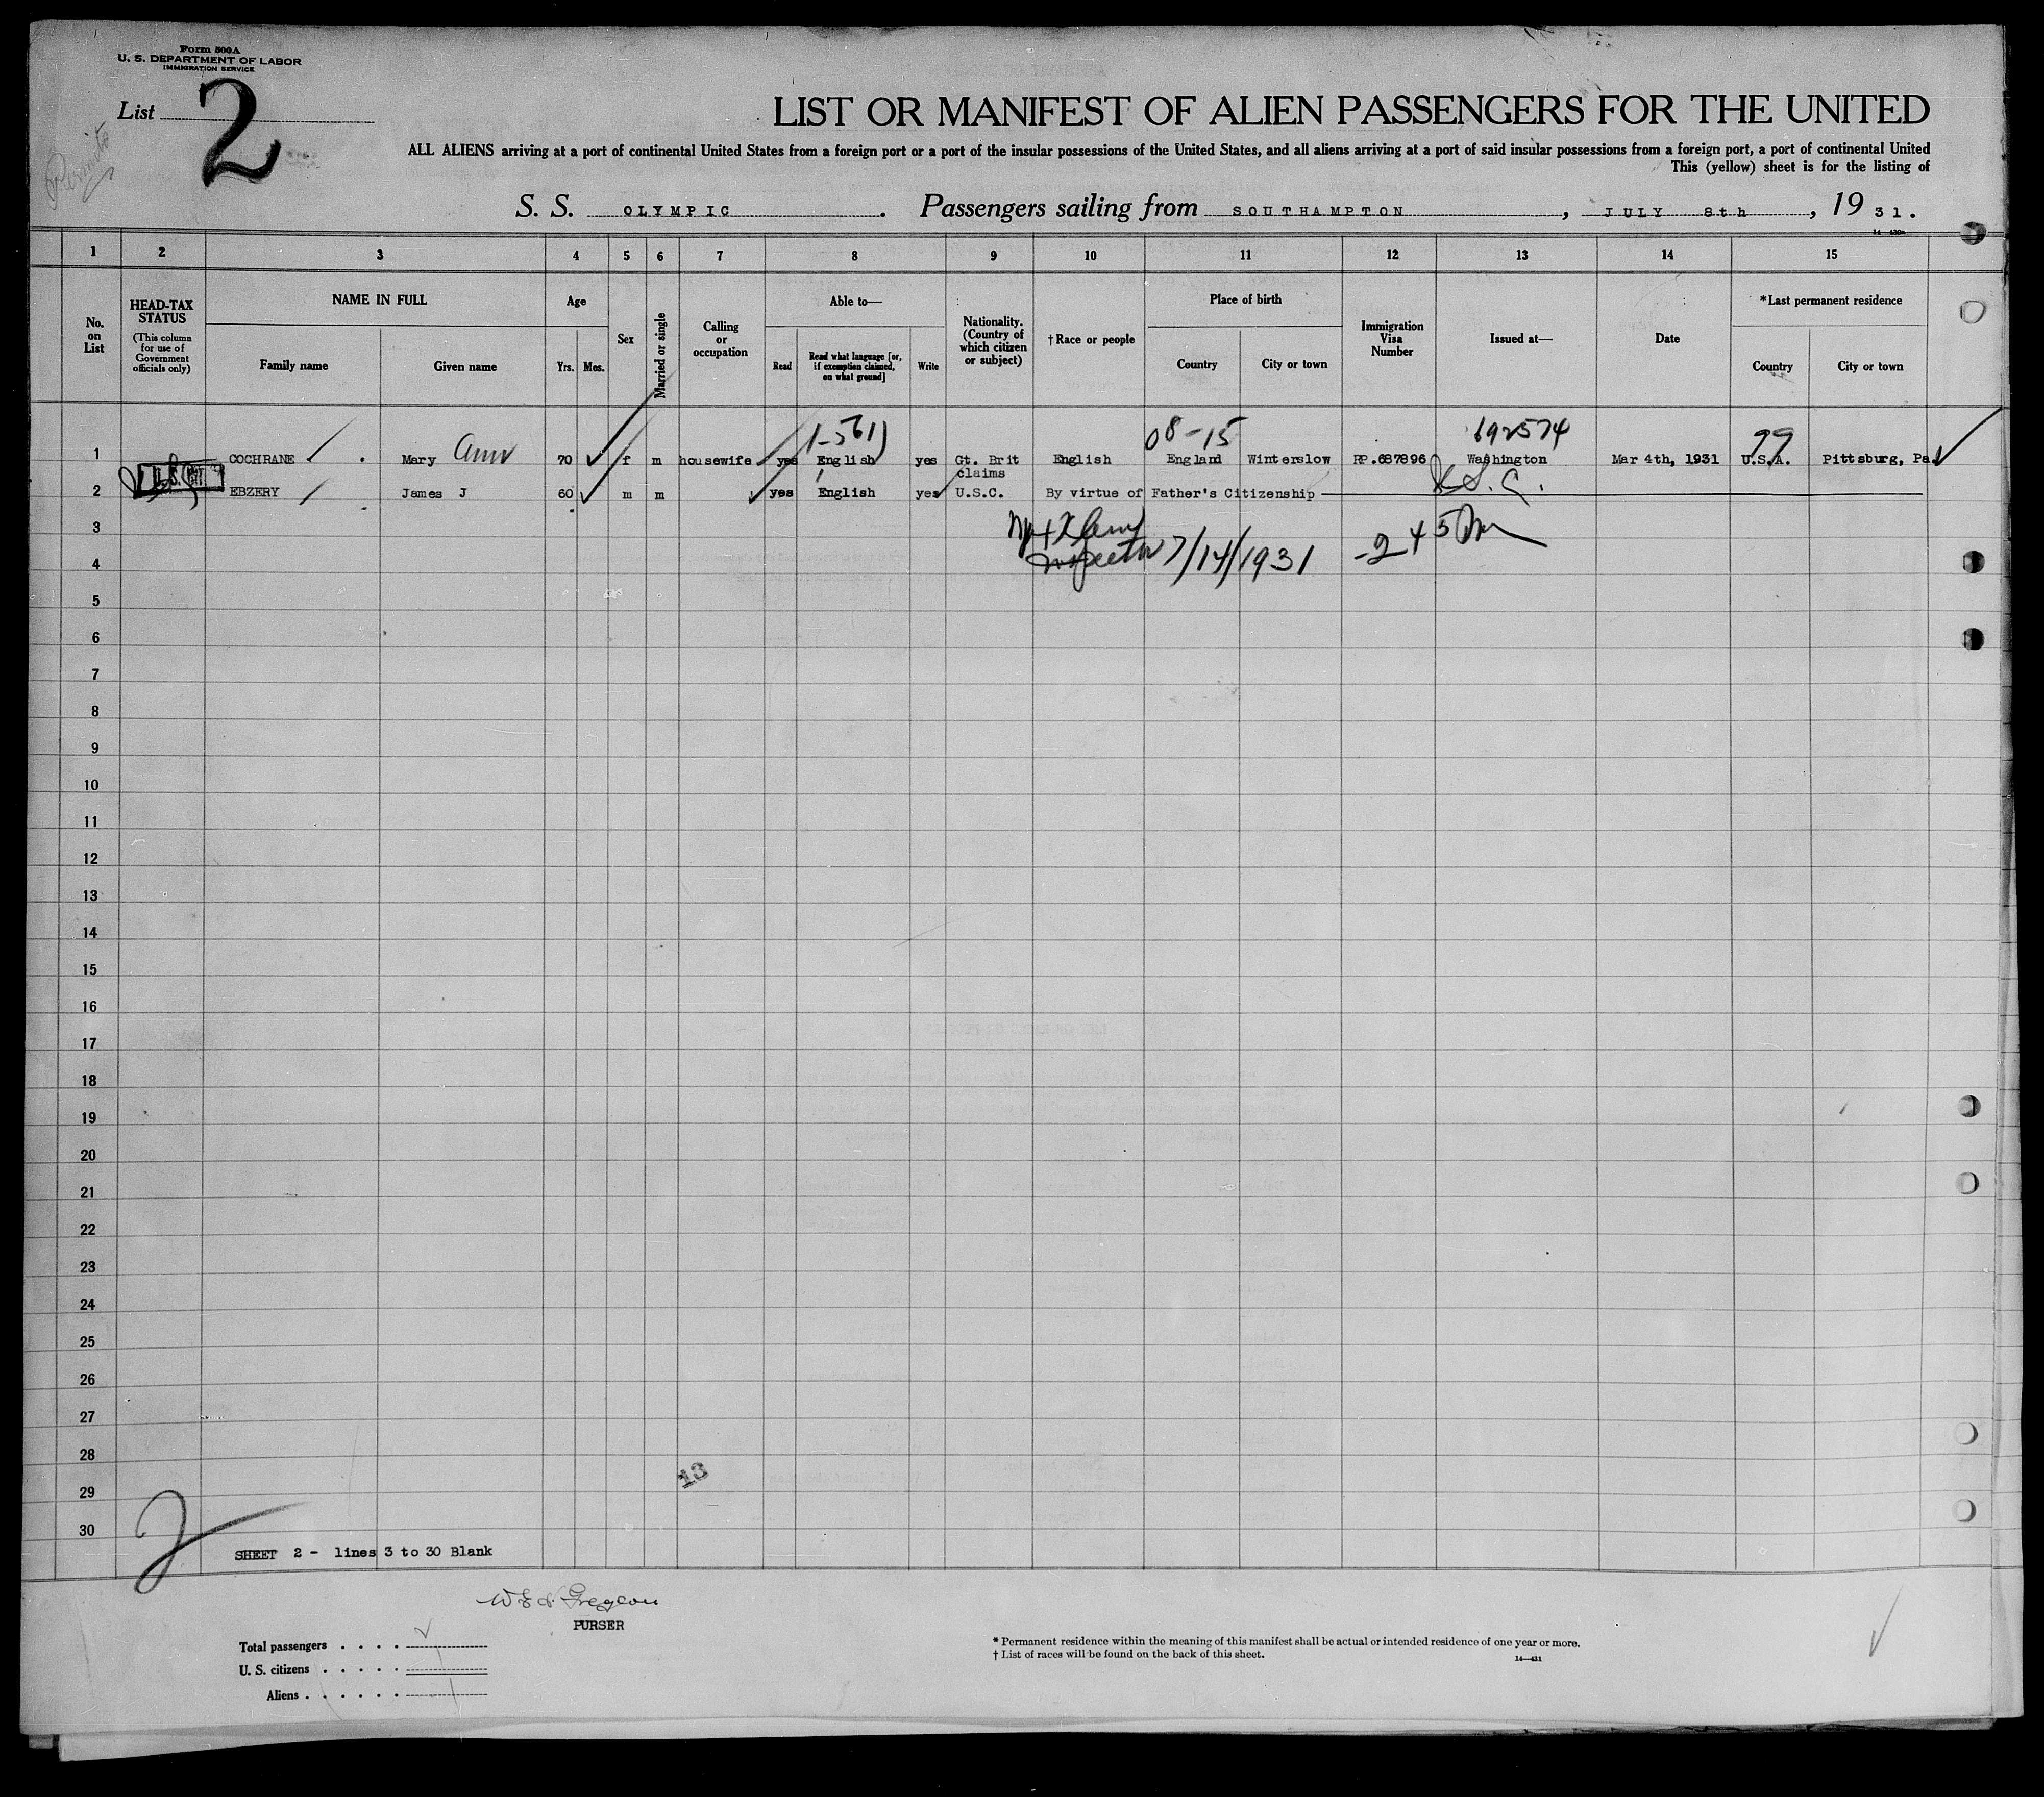 Form 500A
U. S. DEPARTMENT OF LABOR
IMMIGRATION SERVICE
List 2
Permits
LIST OR MANIFEST OF ALIEN PASSENGERS FOR THE UNITED
ALL ALIENS arriving at a port of continental United States from a foreign port or a port of the insular possessions of the United States, and all aliens arriving at a port of said insular possessions from a foreign port, a port of continental United
This (yellow) sheet is for the listing of
S. S. OLYMPIC . Passengers sailing from SOUTHAMPTON , JULY 8th , 19 31.
1 2 3 4 5 6 7 8 9 10 11 12 13 14 15
No. on List
HEAD-TAX STATUS
(This column for use of Government officials only)
NAME IN FULL
Family name
Given name
Age
Yrs. Mos.
Sex
Married or single
Calling or occupation
Able to—
Read
Read what language [or, if exemption claimed, on what ground]
Write
Nationality. (Country of which citizen or subject)
† Race or people
Place of birth
Country
City or town
Immigration Visa Number
Issued at—
Date
* Last permanent residence
Country
City or town
08-15 692574 99
1 COCHRANE Mary Ann 70 f m housewife yes English yes Gt. Brit English England Winterslow RP.687896 Washington Mar 4th, 1931 U.S.A. Pittsburg, Pa.
claims
2 EBZERY James J 60 m m yes English yes U.S.C. By virtue of Father's Citizenship
3
Inspector 7/14/1931 -245
4
5
6
7
8
9
10
11
12
13
14
15
16
17
18
19
20
21
22
23
24
25
26
27
28
13
29
30
2
SHEET 2 - lines 3 to 30 Blank
PURSER
Total passengers . . . .
U. S. citizens . . . . .
Aliens . . . . . .
* Permanent residence within the meaning of this manifest shall be actual or intended residence of one year or more.
† List of races will be found on the back of this sheet.
14—431